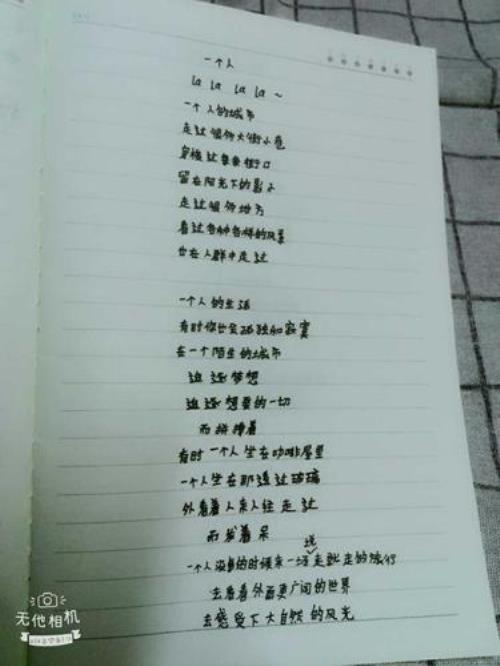 一个人
la la la la ~
一个人的城市
走过很多大街小巷
穿梭过条条街口
留在阳光下的影子
走过很多地方
看过各种各样的风景
会在人群中走过
一个人的生活
有时你也会孤独和寂寞
在一个陌生的城市
追逐梦想
追逐想要的一切
而拼搏着
有时一个人坐在咖啡屋里
一个人坐在那透过玻璃
外看着人来人往走过
而发着呆
一个人没事的时候来一场说走就走的旅行
去看看外面更广阔的世界
去感受下大自然的风光
无他相机